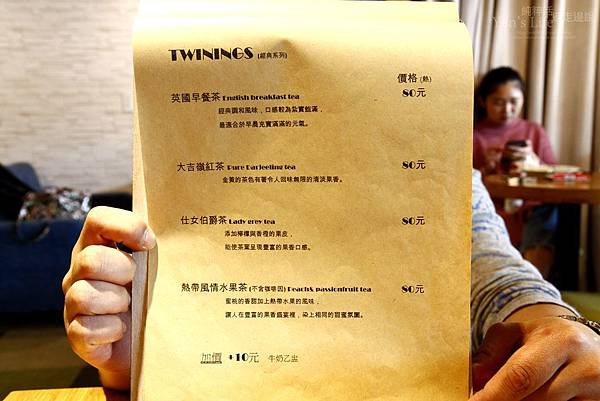 TWININGS (經典系列)
價格 (熱)
英國早餐茶 English breakfast tea 80元
經典調和風味，口感較為紮實飽滿，
最適合於早晨充實滿滿的元氣。
大吉嶺紅茶 Pure Darjeeling tea 80元
金黃的茶色有著令人回味無限的清淡果香。
仕女伯爵茶 Lady grey tea 80元
添加檸檬與香橙的果皮，
能使茶葉呈現豐富的果香口感。
熱帶風情水果茶 (不含咖啡因) Peach& passionfruit tea 80元
蜜桃的香甜加上熱帶水果的風味，
讓人在豐富的果香盛宴裡，染上相同的甜蜜氛圍。
加價 +10元 牛奶乙盅